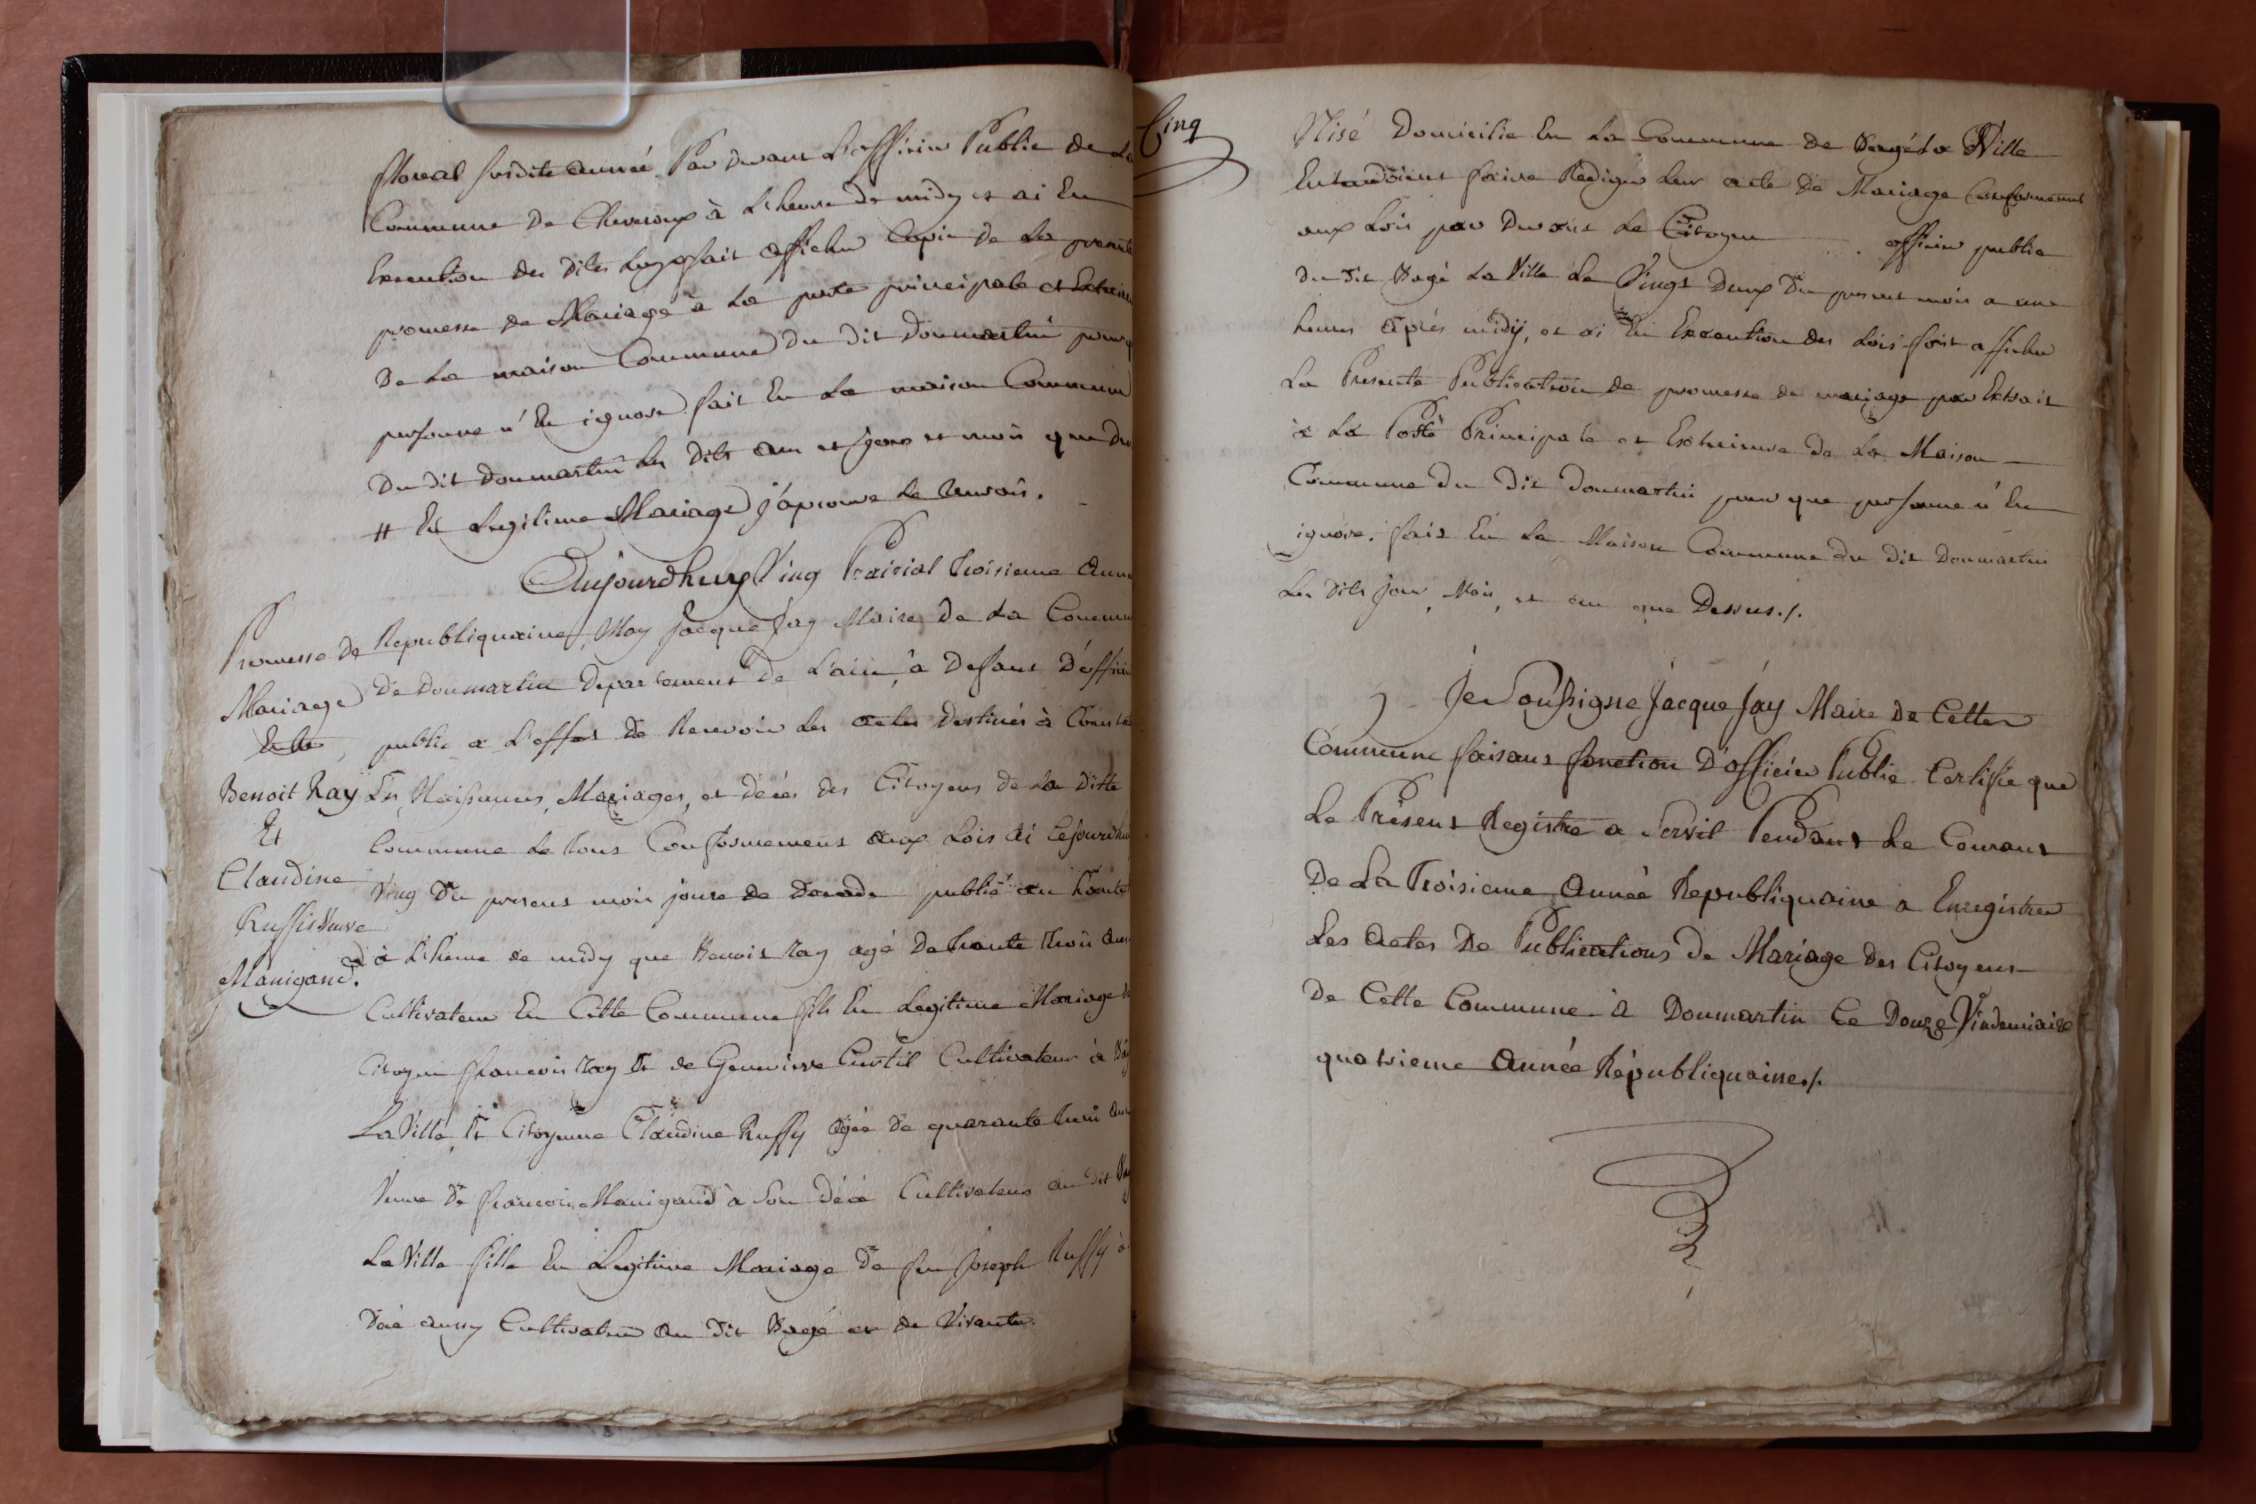 floreal susdite année Par devant L'officier Public de La
Commune de Cheveroux à L'heure de midy et ai En
Execution des dites Loys fait afficher Copie de La presente
promesse de Mariage à La porte principale et Exterieure
De La maison Commune du dit Donmartin pour q
personne n'En ignore fait En La maison Commune
Du dit Donmartin Les dits an et jour et mois que De
# En Legitime Mariage j'aprouve Le renvois.
Aujourdhuy Ving Prairial Troisieme Anné
Republiquaine, Moy Jacque Jay Maire de La Commun
De Donmartin Departement De L'ain, a Defaut D'officie
public a L'effet de Recevoir Les actes Destinés à Const
Les Naissances, Mariages, et décés des Citoyens de La ditte
Commune Le tous Conformement aux Lois ai Cejourdhu
Ving Du present mois jour de Decade publié au haute
à L'heure de midy que Benoit Ray agé De trante trois ans
Cultivateur En Cette Commune fils En Legitime Mariage d
Citoyen francois Ray Et de Genevieve Curtil Cultivateur à Bâg
La Ville, Et Citoyenne Claudine Ruffy agée De quarante huit ans
Veuve De francois Manigand à Son décé Cultivateur au dit Bag
La Ville fille En Legitime Mariage De feu Joseph Ruffy à
Décé aussy Cultivateur au dit Bagé et de Vivante
Promesse de
Mariage
Entre
Benoit Ray
Et
Claudine
Ruffis Veuve
Manigand.
Cinq
Nisé Domicilié En La Commune de Bagé La Ville
Entandoient faire Rediger Leur acte De Mariage Conformement
aux Lois par Devant Le Citoyen officier public
Du dit Bagé La Ville Le Vingt Deux Du present mois a une
heures après midÿ, et ai En Execution des Lois fait afficher
La Presente Publication de promesse de mariage par Extrait
à La Porte Principale et Exterieure De La Maison
Commune Du Dit Donmartin pour que personne n'En
ignore. fait En La Maison Commune Du Dit Donmartin
Les Dits Jour, Mois, et an que Dessus./.
Je Soussigné Jacque Jay Maire De Cette
Commune faisant fonction D'officier Public Certifie que
Le Présent Registre a Servit Pendant Le Courant
De La Troisieme Année Republiquaine a Enregistrer
Les Actes De Publications De Mariage Des Citoyens
De Cette Commune. A Donmartin Ce Douze Vindemiaire
quatrieme Année Républiquaine./.